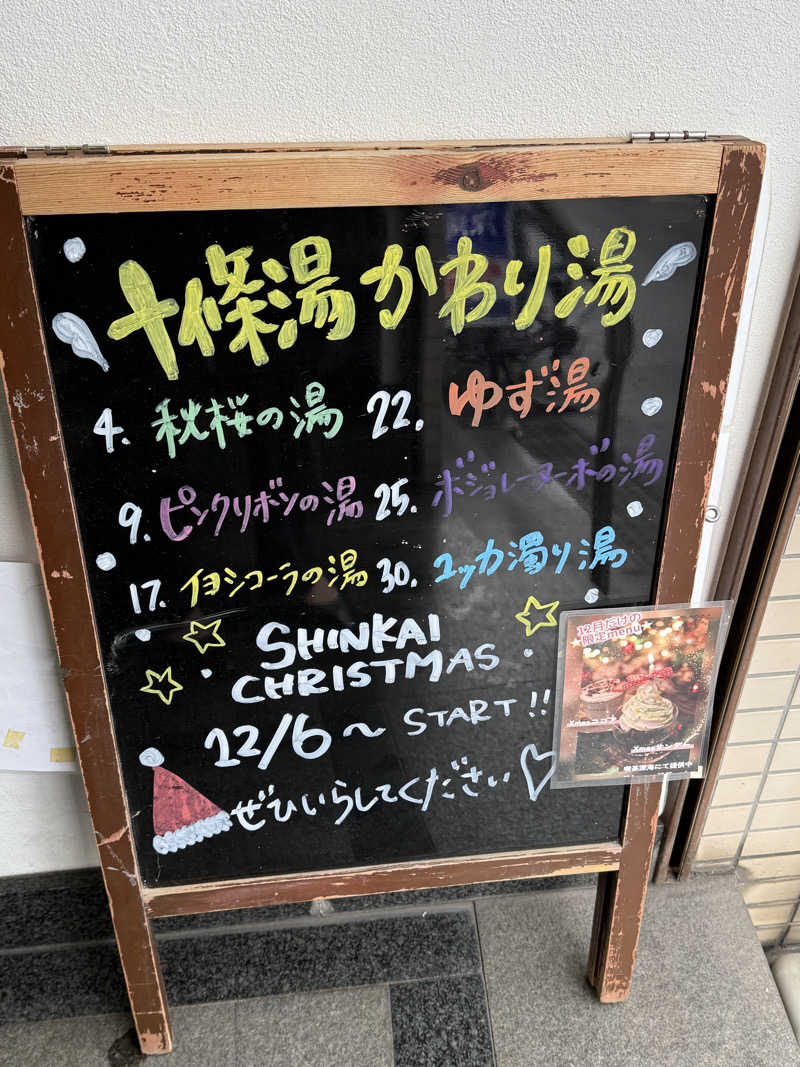 十條湯かわり湯
4. 秋桜の湯
9. ピンクリボンの湯
17. イヨシコーラの湯
22. ゆず湯
25. ボジョレーヌーボの湯
30. ユッカ濁り湯
SHINKAI
CHRISTMAS
12/6〜 START!!
ぜひいらしてください♡
12月だけの
限定menu
Xmasココア
Xmasサンデー
喫茶深海にて提供中